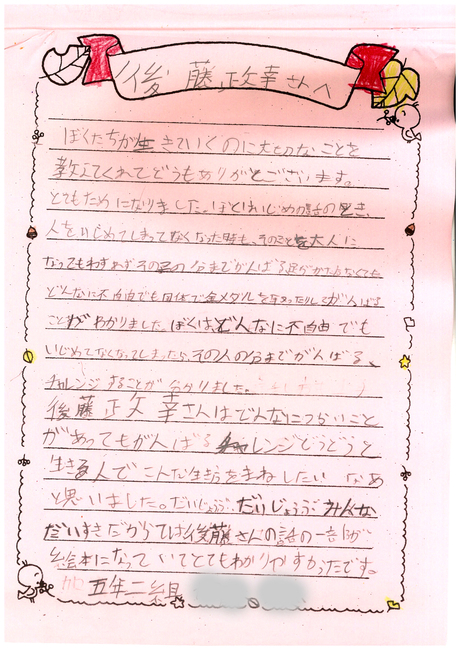 後藤政幸さんへ
ぼくたちが生きていくのに大切なことを
教えてくれてどうもありがとうございます。
とてもためになりました。ぼくはいじめの話のとき、
人をいじめてしまってなくなった時も、そのことを大人に
なってもわすれずその子の分までがんばる
どんなに不自由でも団体で金メダルを
ことがわかりました。ぼくは、どんなに不自由でも
いじめてなくなってしまったら、その人の分までがんばる、
チャレンジすることが分かりました。
後藤政幸さんはどんなにつらいこと
があってもがんばるチャレンジどうどうと
生きる人でこんな生き方をまねしたい なあ
と思いました。だいじょうぶ だいじょうぶ みんな
だいすきだからでは後藤さんの話の一部が
絵本になっていてとてもわかりやすかったです。
五年二組